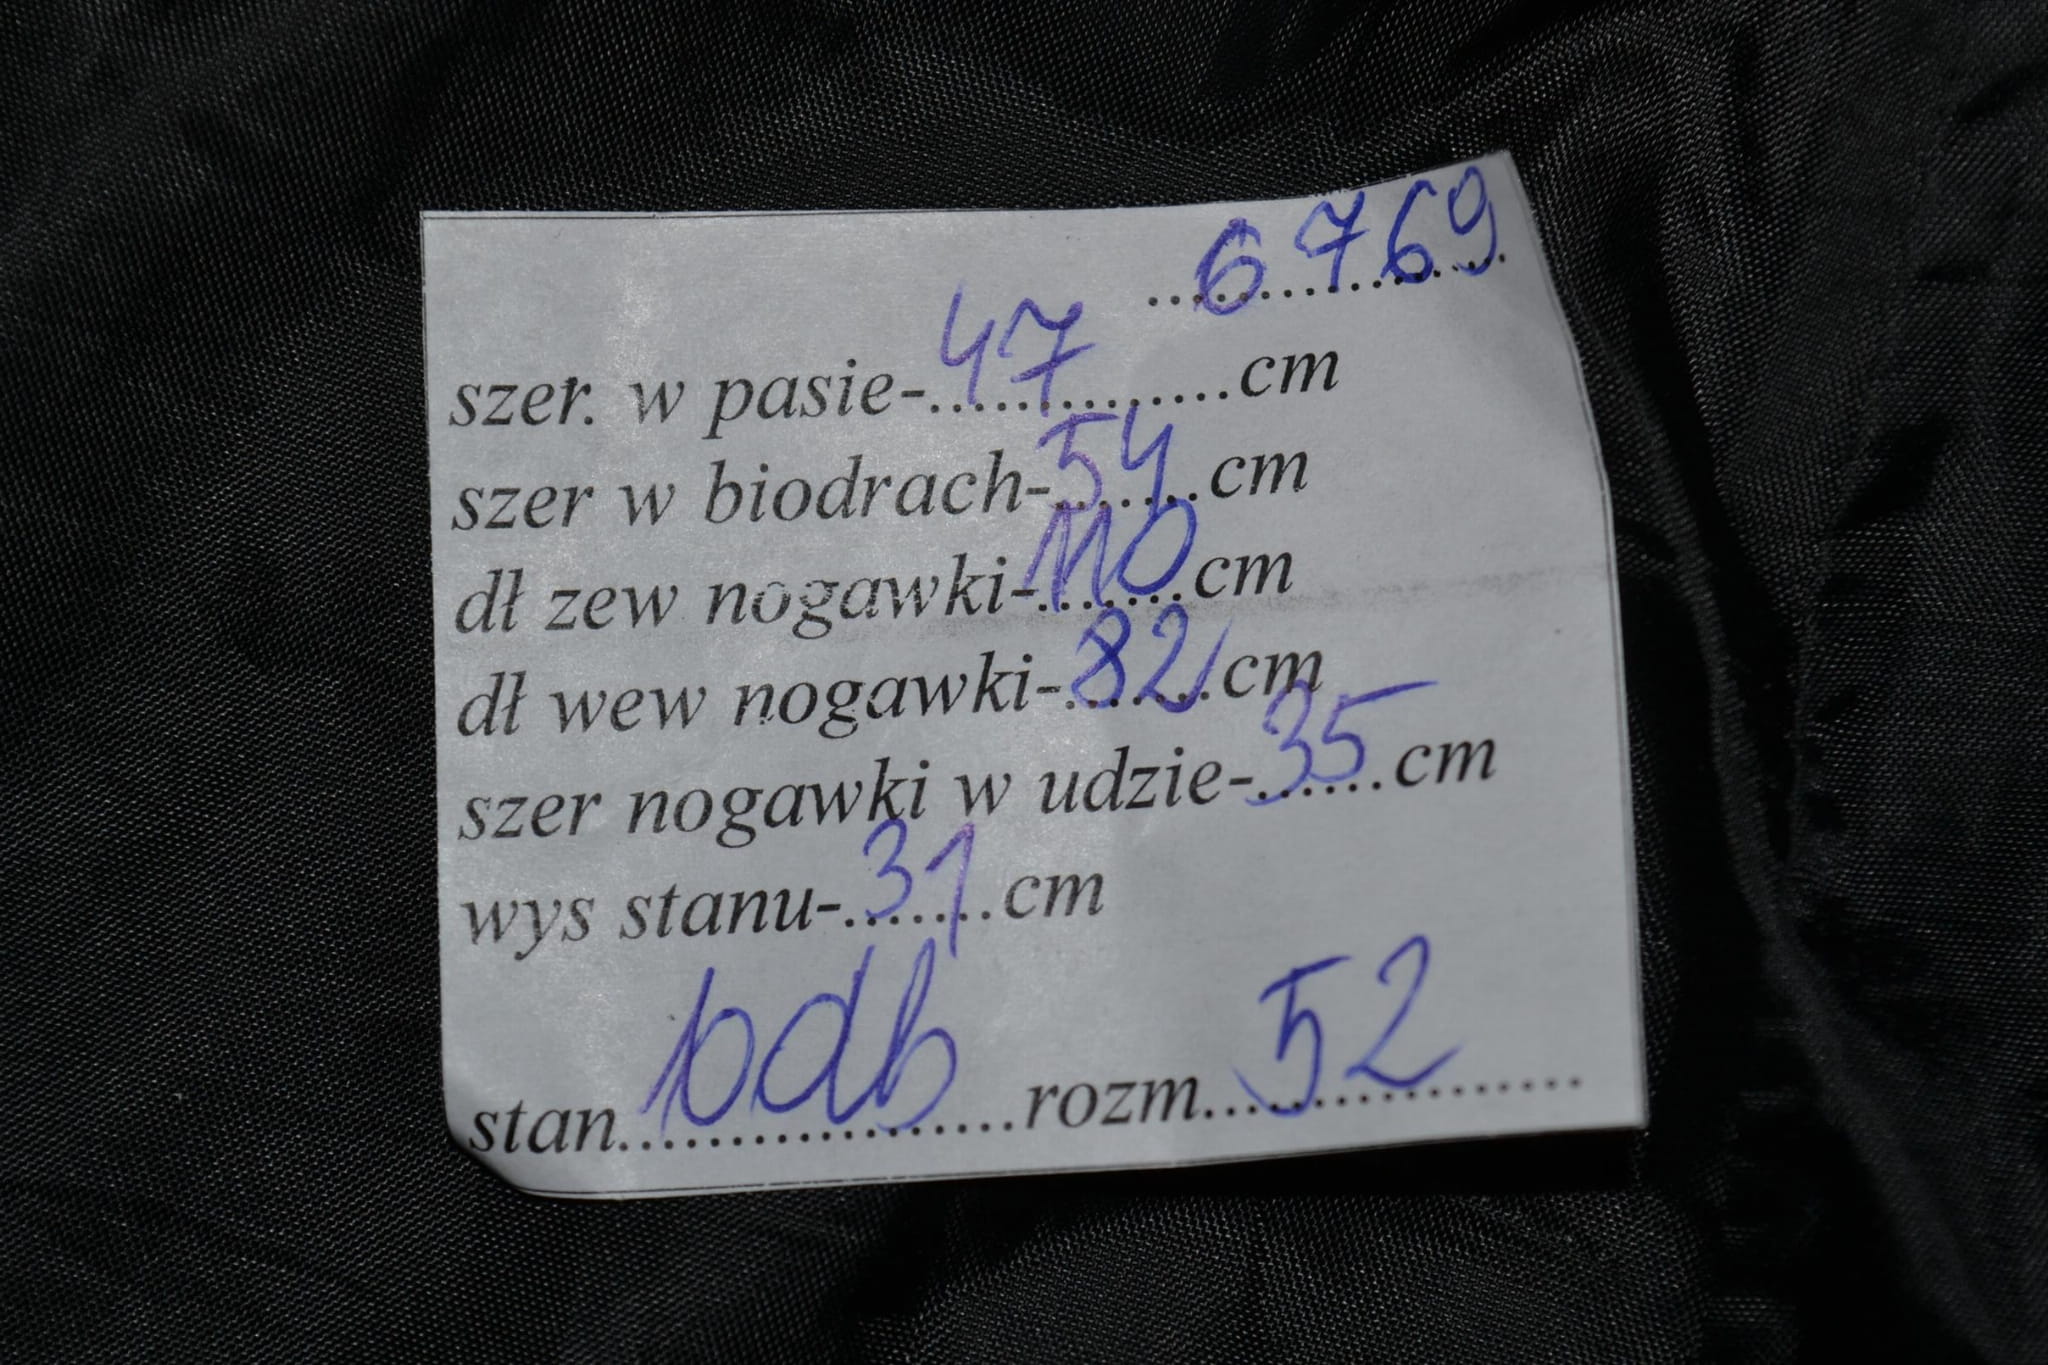 6769
szer. w pasie-47..............cm
szer w biodrach-54.......cm
dł zew nogawki-110.......cm
dł wew nogawki-82.......cm
szer nogawki w udzie-35......cm
wys stanu-31.......cm
stan bdb..................rozm 52.................